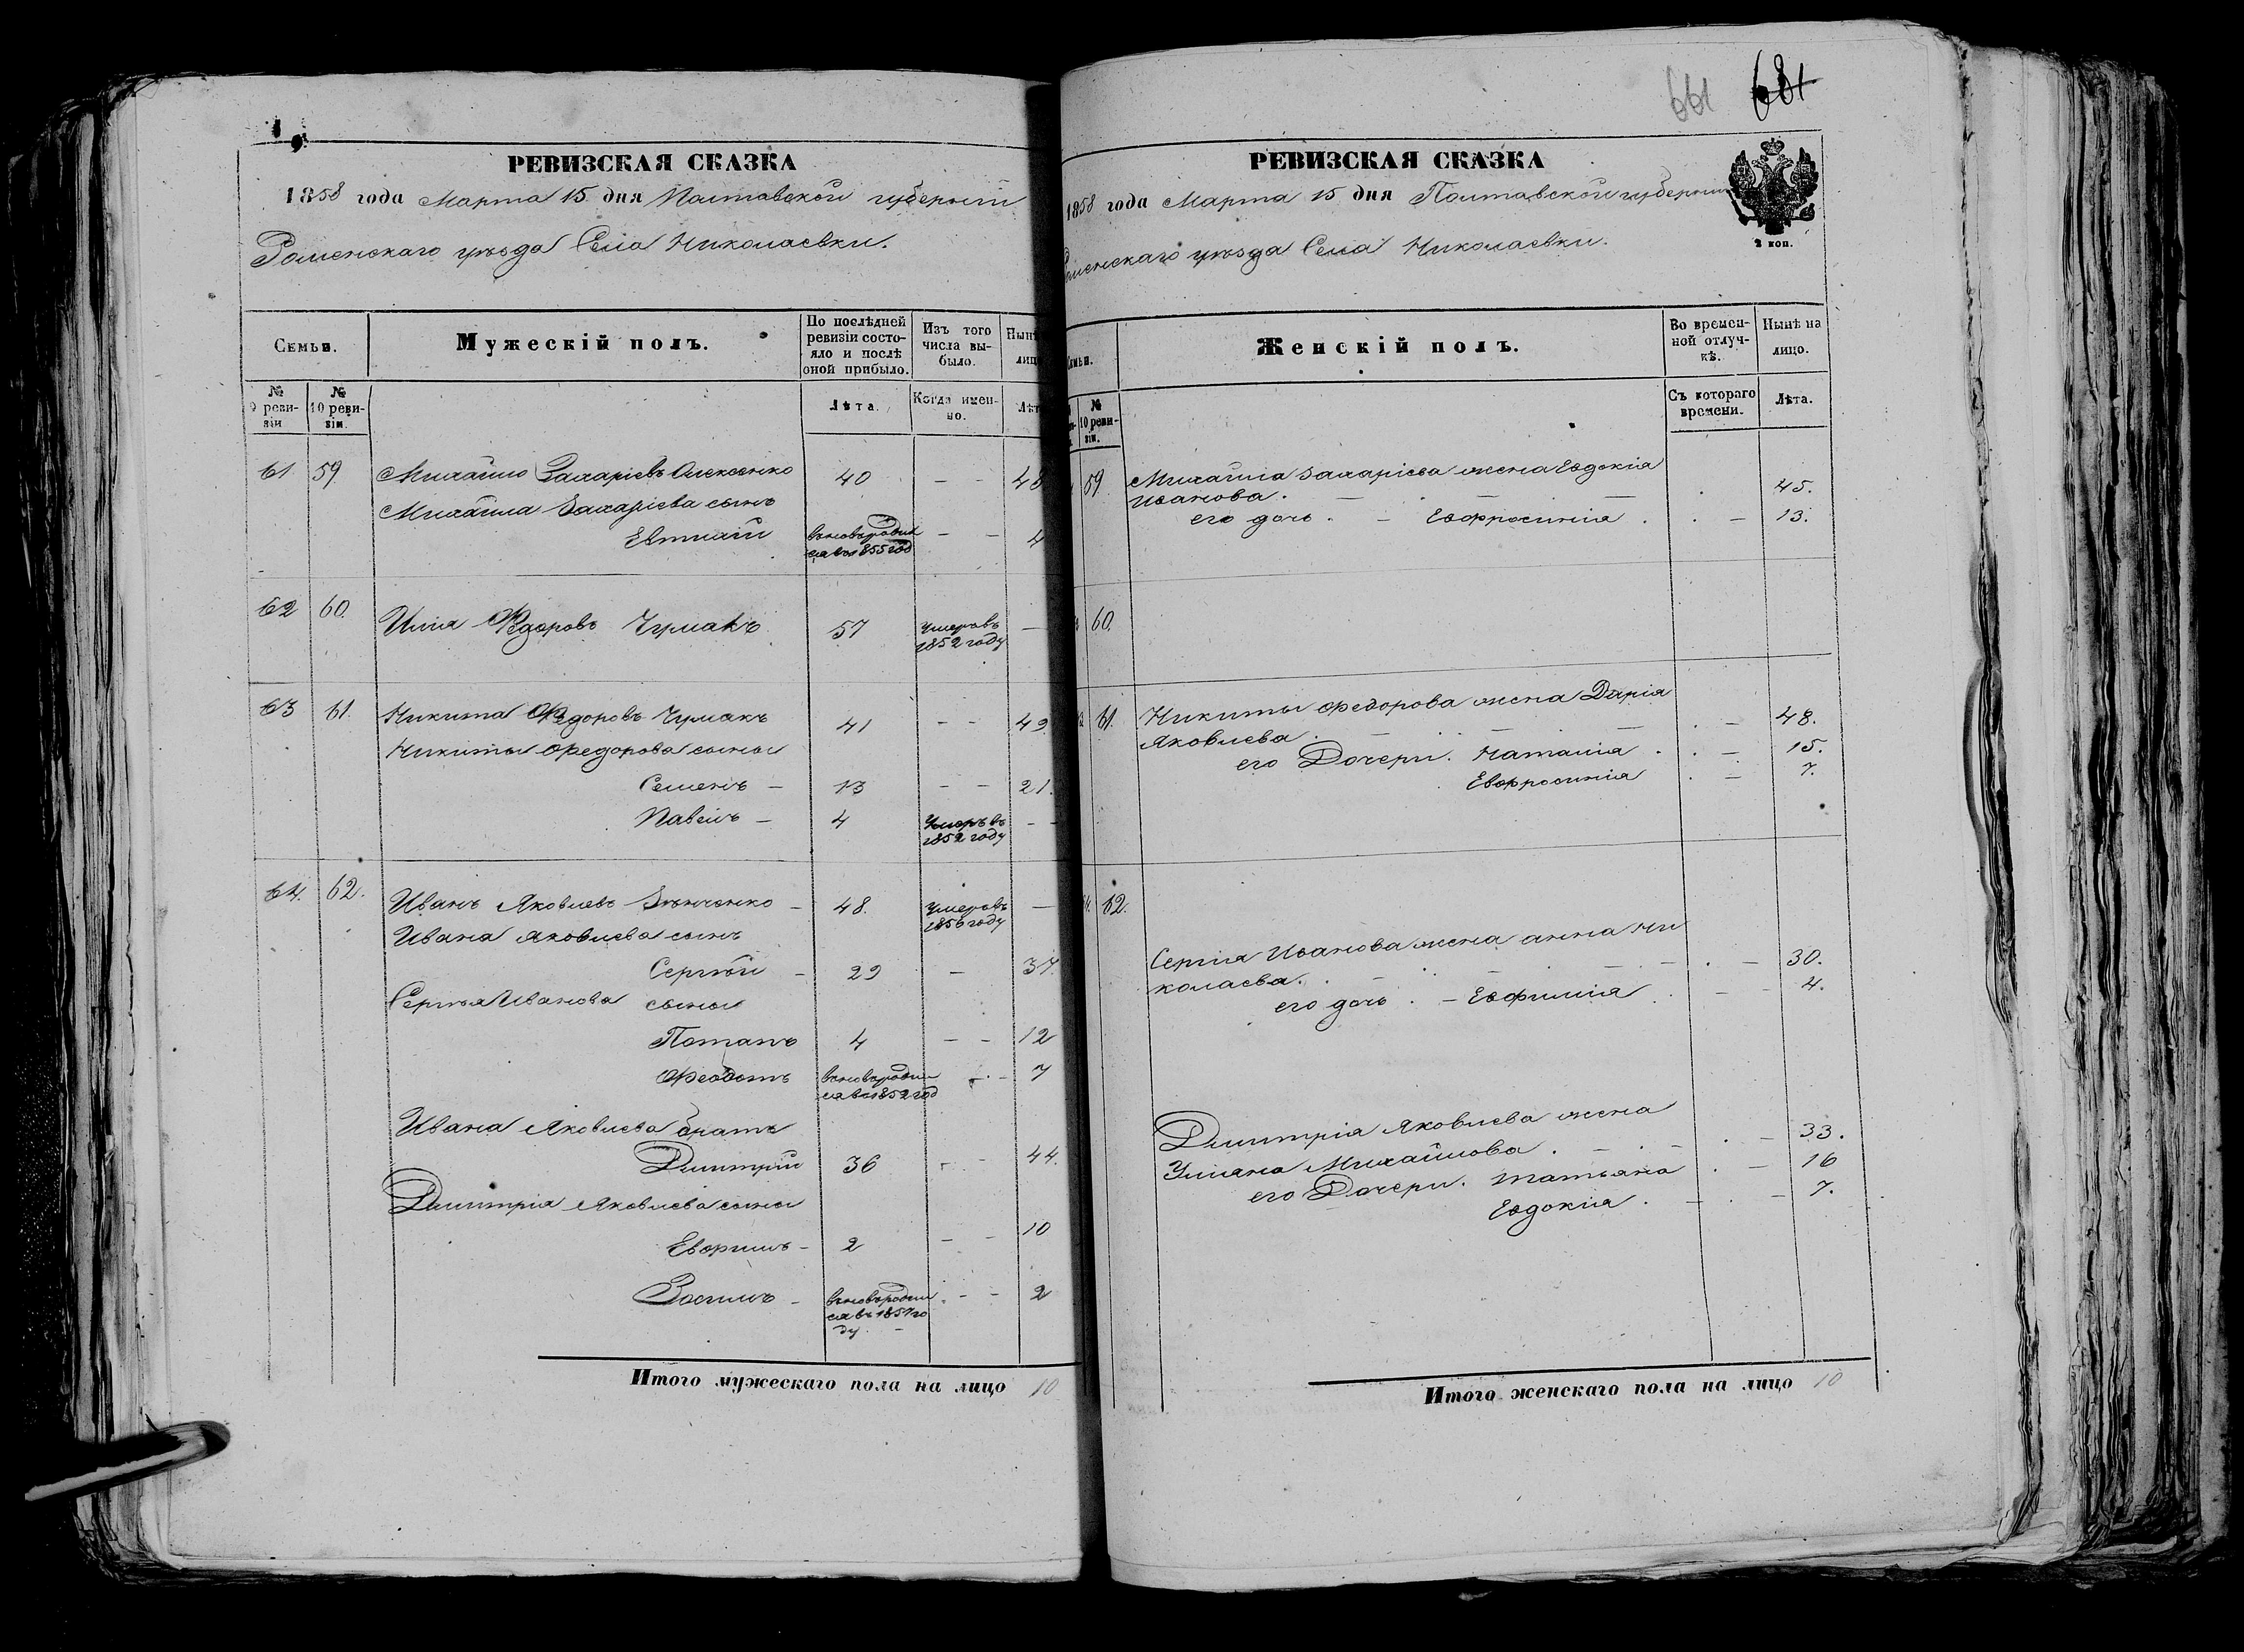 РЕВИЗСКАЯ СКАЗКА
1858 года Марта 15 дня Полтавской губернiи
Роменскаго уѣзда Села Николаевки.
Семьи.
Мужескiй полъ.
По послѣдней ревизiи состояло и послѣ оной прибыло.
Изъ того числа выбыло.
Нынѣ
лиц
№ 9 ревизiи
№ 10 ревизiи.
Лѣта.
Когда именно.
Лѣт
61. 59. Михайло Захарiевъ Олексенко 40 - - 48
Михайла Захарiева сынъ
Евтихiй вновь родился въ 1855 год - - 4
62 60. Илiя Федоровъ Чумакъ 57 Умеръ въ 1852 году —
63 61. Никита Федоровъ Чумакъ 41 - - 49
Никиты Федорова сыны
Семенъ — 13 - - 21.
Павелъ — 4 Умеръ въ 1852 году - -
64. 62. Иванъ Яковлевъ Зѣнченко — 48. Умеръ въ 1856 году —
Ивана Яковлева сынъ
Сергѣй — 29 — 37.
Сергѣя Иванова сыны
Потапъ 4 - - 12
Феодотъ вновь родился въ 1852 год - - 7
Ивана Яковлева братъ
Дмитрiй 36 - - 44.
Дмитрiя Яковлева сыны
Евфимъ - 2 - - 10
Зосимъ - вновь родился въ 1857 году. - - 2
Итого мужескаго пола на лицо 10
661 681
РЕВИЗСКАЯ СКАЗКА
1858 года Марта 15 дня Полтавской губернiи
оменскаго уѣзда Села Николаевки.
2 коп.
емьи.
Женскiй полъ.
Во временной отлучкѣ.
Нынѣ на лицо.
№ 10 ревизiи.
Съ котораго времени.
Лѣта.
59. Михайла Захарiева жена Евдокiя
Иванова. 45.
его дочь. - Евфросинiя. 13.
60.
61. Никиты Федорова жена Дарiя
Яковлева. 48.
его Дочери. Наталiя. 15.
Евфросинiя 7.
62.
Сергiя Иванова жена Анна Ни
колаева. 30.
его дочь. - Евфимiя 4.
Дмитрiя Яковлева жена
Улiяна Михайлова. 33.
его Дочери. Татьяна 16
Евдокiя. 7.
Итого женскаго пола на лицо 10